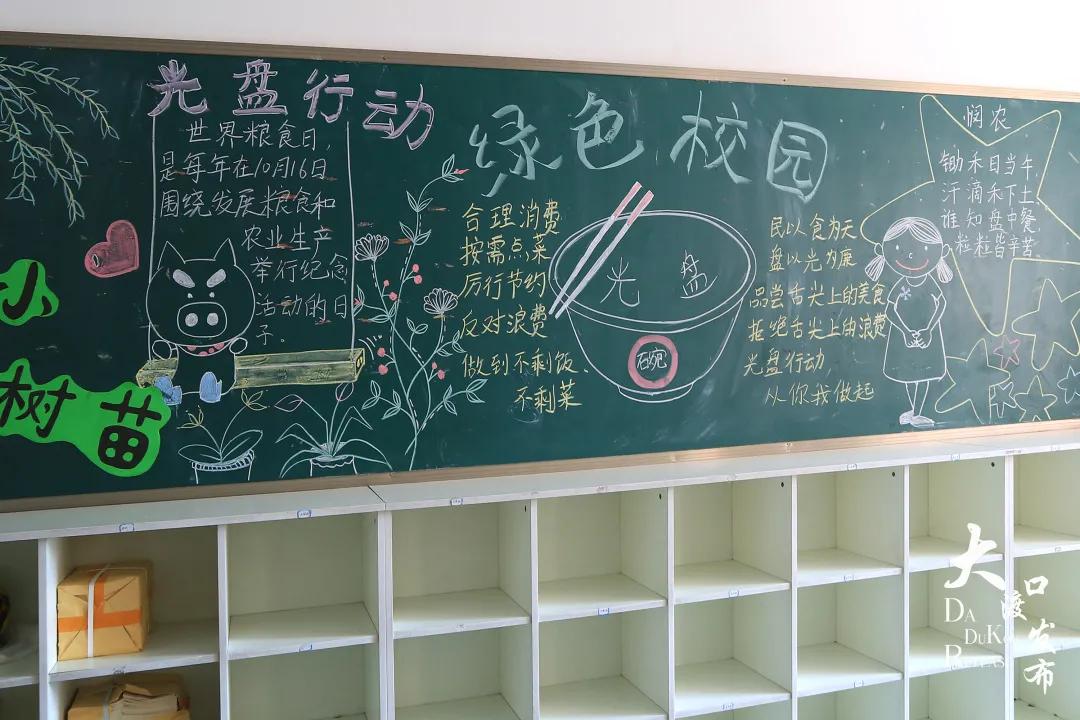 光盘行动
世界粮食日，
是每年在10月16日
围绕发展粮食和
农业生产
举行纪念
活动的日
子。
小
树苗
绿色校园
合理消费
按需点菜
厉行节约
反对浪费
做到不剩饭、
不剩菜
光盘
民以食为天
盘以光为廉
品尝舌尖上的美食
拒绝舌尖上的浪费
光盘行动，
从你我做起
悯农
锄禾日当午，
汗滴禾下土，
谁知盘中餐，
粒粒皆辛苦。
大渡口发布
DA
DUKOU
RELEASE